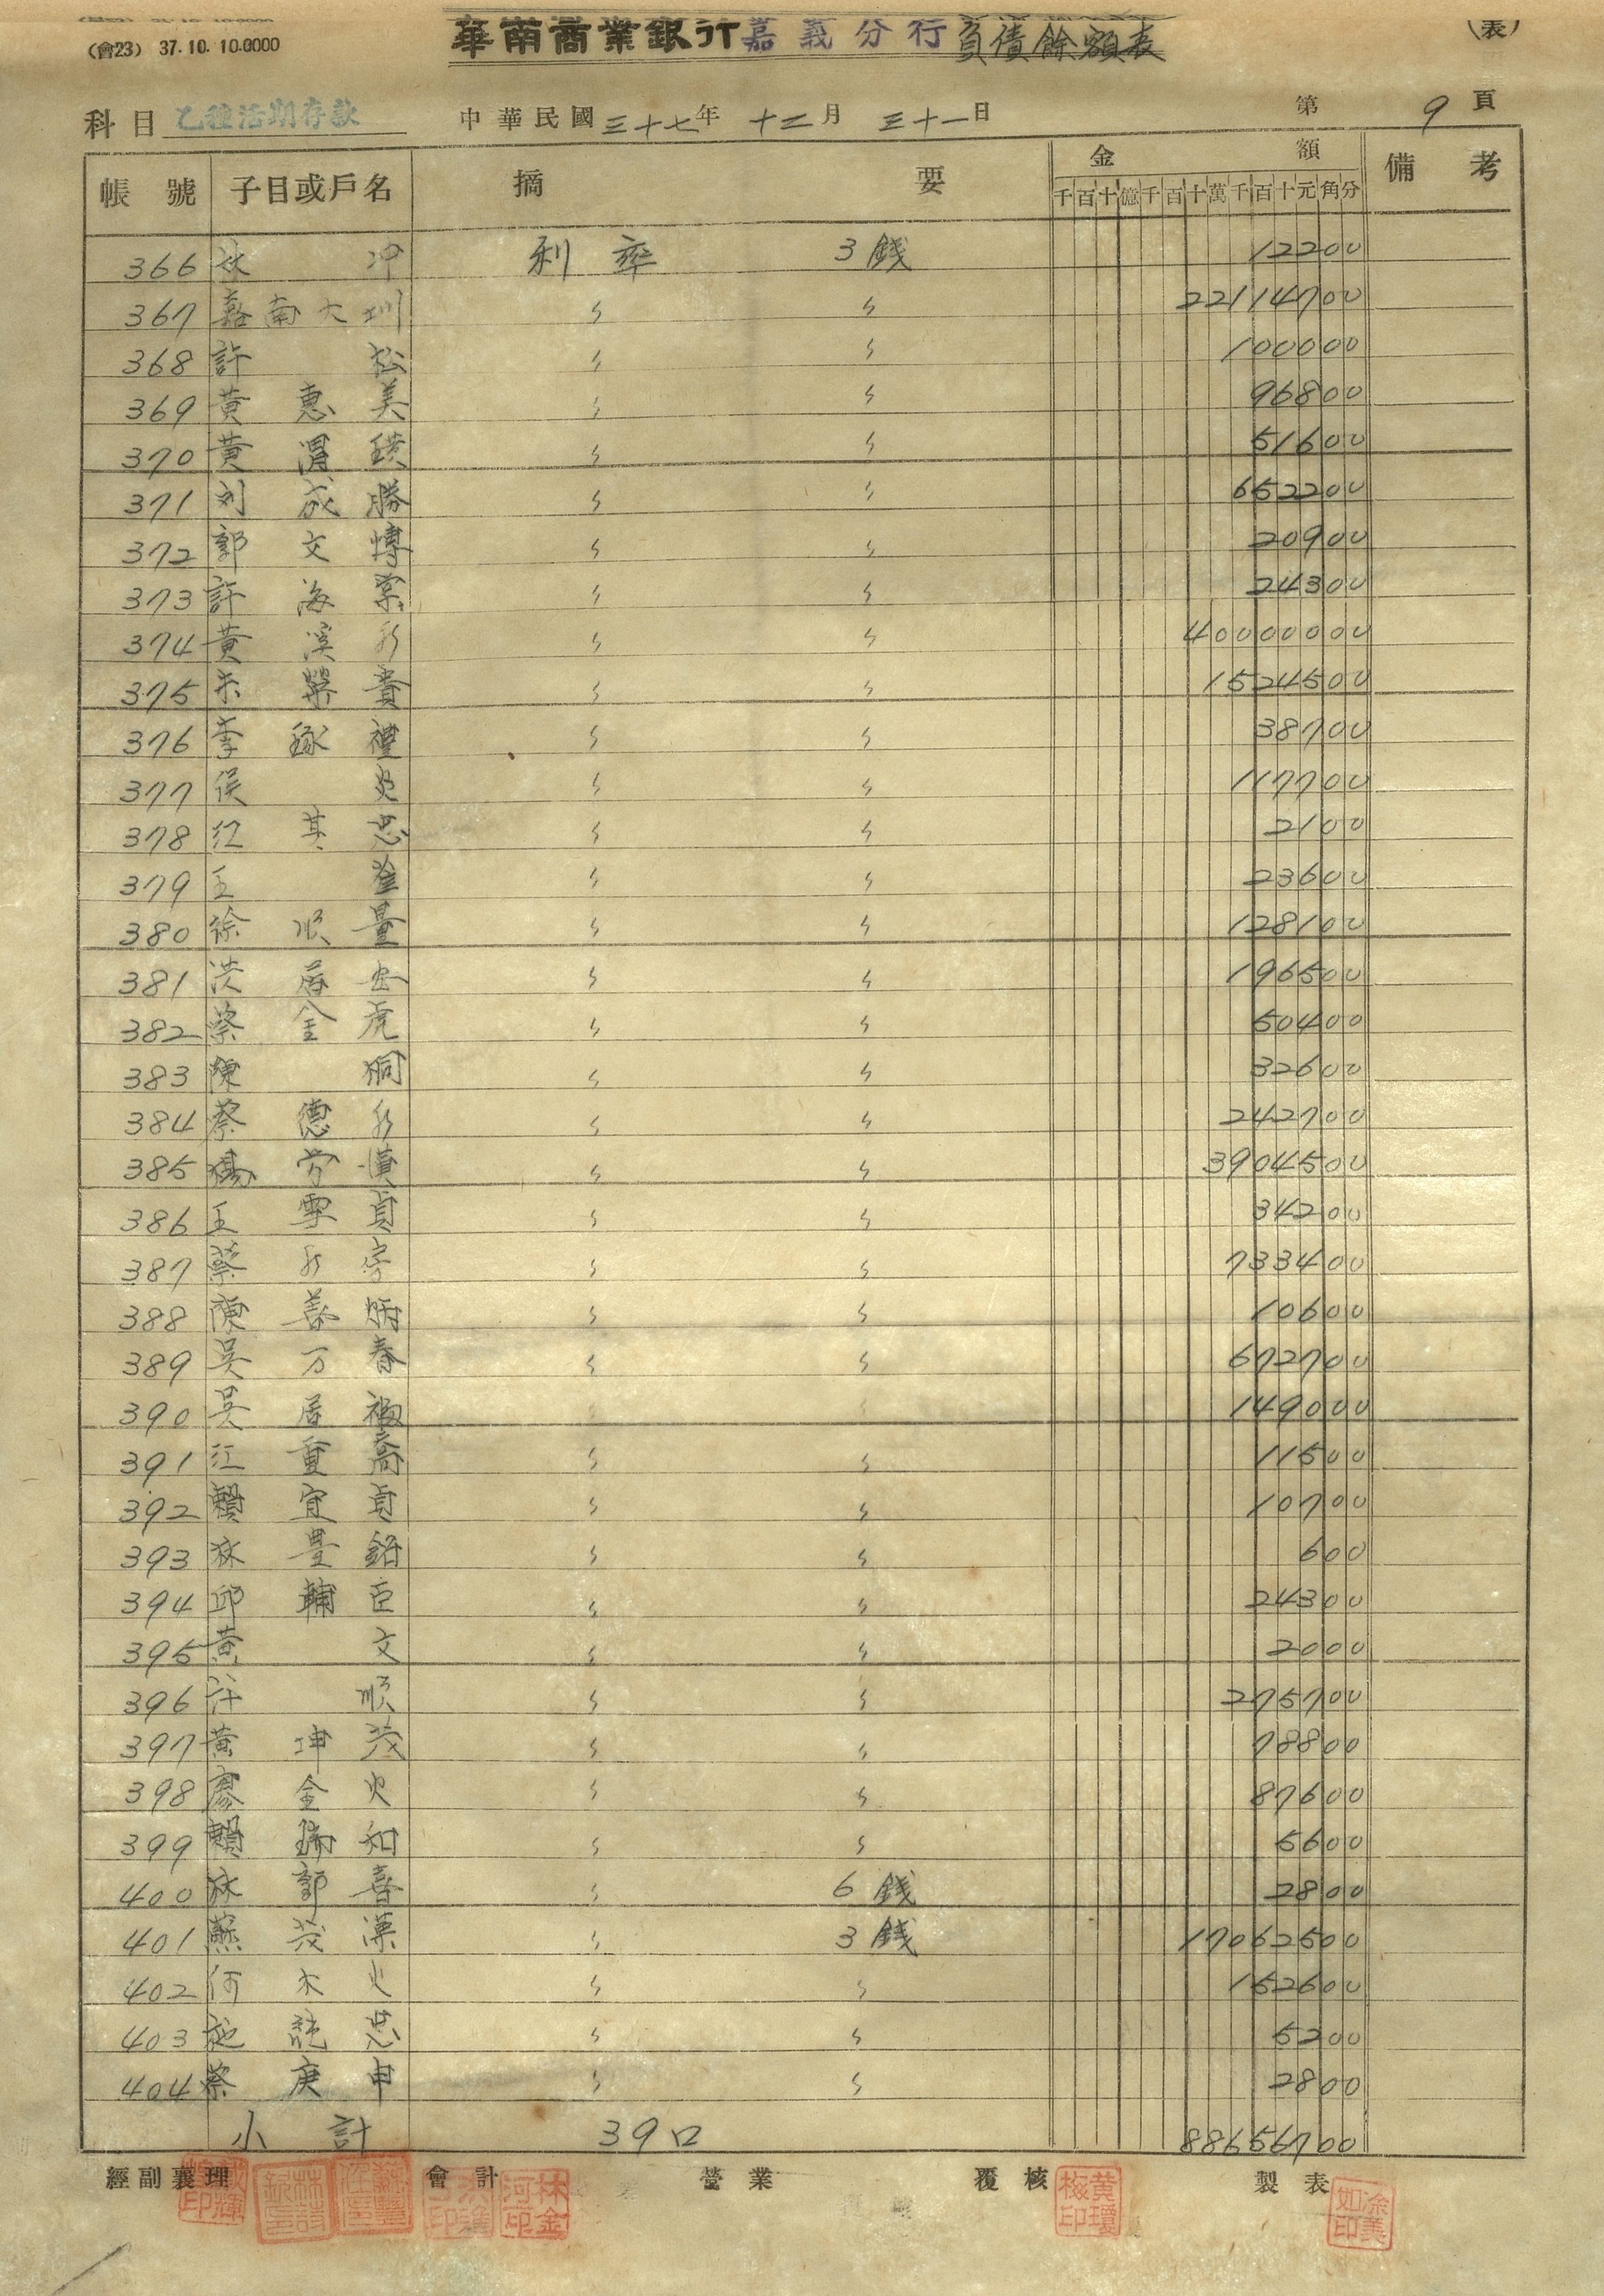 (會23) 37.10.10.0000
華南商業銀行嘉義分行負債餘額表
(表)
科目 乙種活期存款 中華民國三十七年十二月三十一日 第9頁
帳號 子目或戶名 摘要 金額 備考
千百十億千百十萬千百十元角分
366 林 冲 利率 3錢 12200
367 嘉南大圳 〃 〃 22114700
368 許 松 〃 〃 100000
369 黃惠美 〃 〃 96800
370 黃渭 〃 〃 51600
371 刘成勝 〃 〃 652200
372 郭文博 〃 〃 20900
373 許海棠 〃 〃 24300
374 黃溪 〃 〃 40000000
375 〃 〃 1524500
376 李 禮 〃 〃 38700
377 侯 〃 〃 117700
378 江其忠 〃 〃 2100
379 王 〃 〃 23600
380 徐順量 〃 〃 128100
381 洪 〃 〃 196500
382 蔡金虎 〃 〃 50400
383 陳 〃 〃 32600
384 蔡德 〃 〃 242700
385 楊 〃 〃 3904500
386 王 貞 〃 〃 34200
387 蔡 〃 〃 733400
388 陳善炳 〃 〃 10600
389 吳万春 〃 〃 672700
390 吳居福 149000
391 江重 〃 〃 11500
392 賴宜貞 〃 〃 10700
393 林 〃 〃 600
394 邱輔臣 〃 〃 24300
395 黃 文 〃 〃 2000
396 順 〃 〃 275700
397 黃坤茂 〃 〃 78800
398 廖金火 〃 〃 87600
399 賴瑞和 〃 〃 5600
400 林郭喜 〃 6錢 2800
401 蘇茂漢 〃 3錢 17062500
402 何木火 〃 〃 152600
403 施 忠 〃 〃 5200
404 蔡庚申 〃 〃 2800
小計 39口 88656700
經副襄理 會計 營業 覆核 製表
林金河印
黃瓊梅印
涂義如印